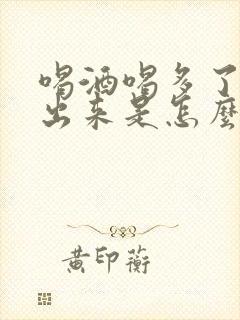 喝酒喝多了
出来是怎麼
黄印蘅